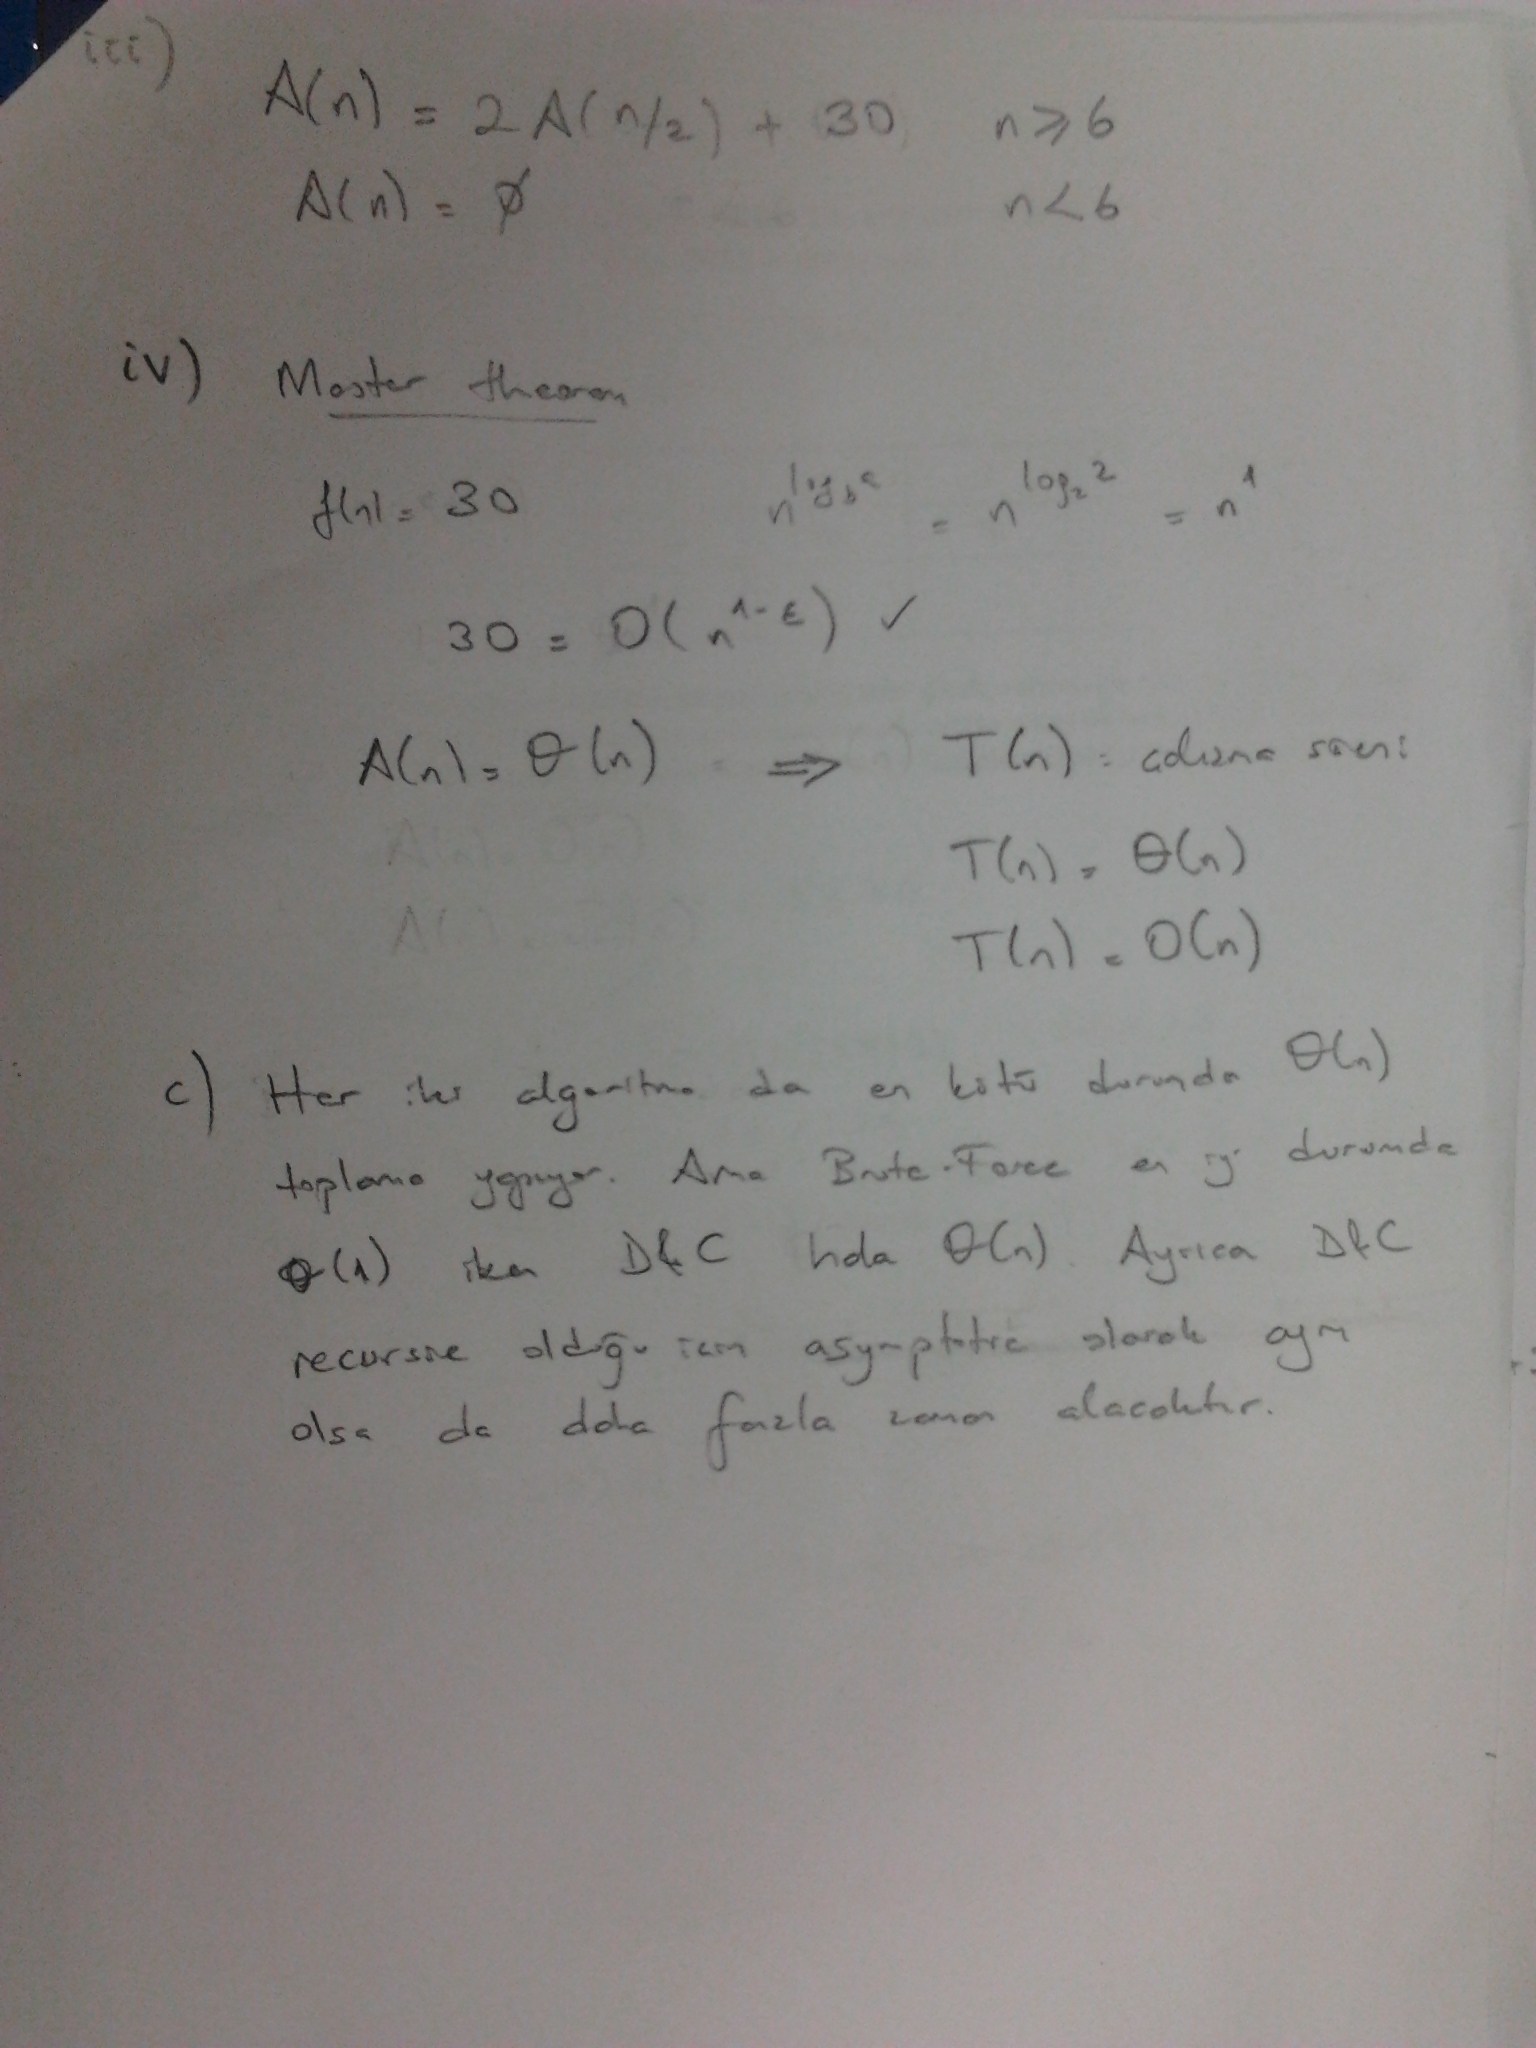 iii)
A(n) = 2A(n/2) + 30 n≥6
A(n) = ∅ n<6
iv) Master theorem
f(n) = 30 n^log_b a = n^log_2 2 = n^1
30 = O(n^1-ε) ✓
A(n) = Θ(n) ⇒ T(n) = çalışma süresi
T(n) = Θ(n)
T(n) = O(n)
c) Her iki algoritma da en kötü durumda Θ(n)
toplama yapıyor. Ama Brute-Force en iyi durumda
Θ(1) iken D&C hala Θ(n). Ayrıca D&C
recursive olduğu için asymptotic olarak aynı
olsa da daha fazla zaman alacaktır.